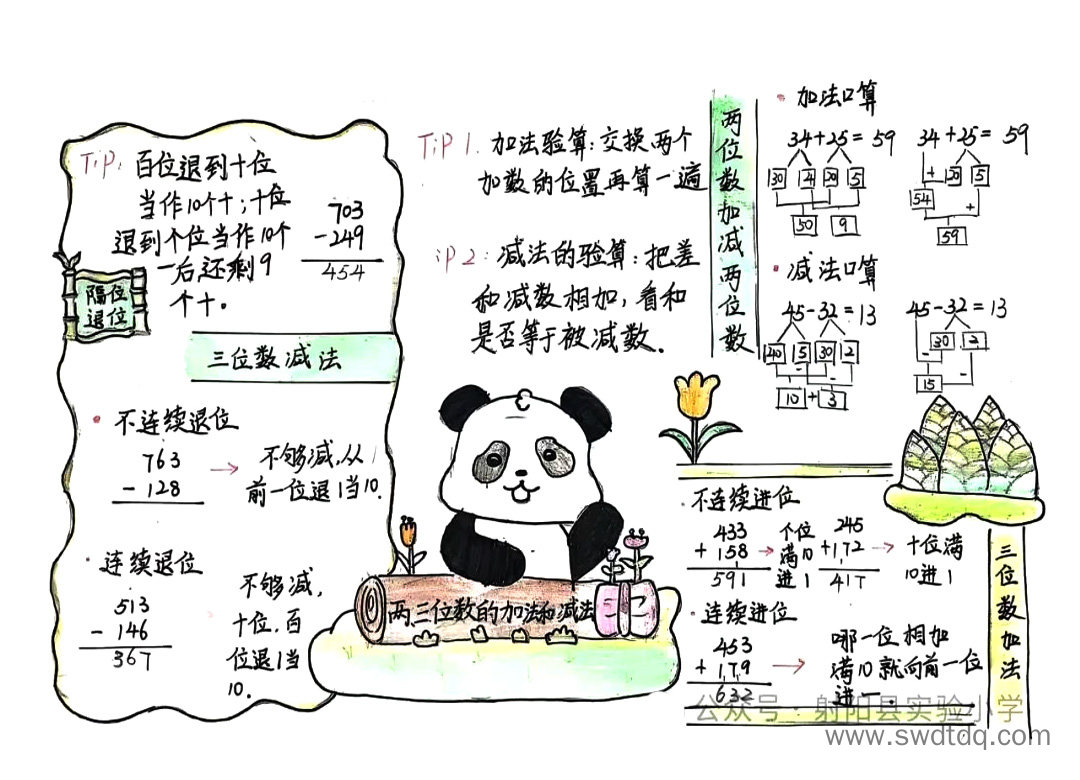 TiP:百位退到十位
当作10个十;十位
退到个位当作10个
一后,还剩9
个十。
703
-249
454
隔位
退位
三位数减法
不连续退位
763
-128
→
不够减,从
前一位退1当10.
连续退位
513
-146
367
不够减,
十位,百
位退1当
10.
TiP 1.加法验算:交换两个
加数的位置再算一遍
iP 2:减法的验算:把差
和减数相加,看和
是否等于被减数.
两位数加减两位数
加法口算
34+25=59
30 4 20 5
50 9
34+25=59
+ 20 5
54 +
59
减法口算
45-32=13
40 5 30 2
- -
10+3
45-32=13
- 30 2
15 -
两、三位数的加法和减法
不连续进位
433
+158
591
→
个位
满10
进1
245
+172
417
→
十位满
10进1
连续进位
453
+179
632
→
哪一位相加
满10就向前一位
进一.
三位数加法
公众号·射阳县实验小学
www.swdtdq.com